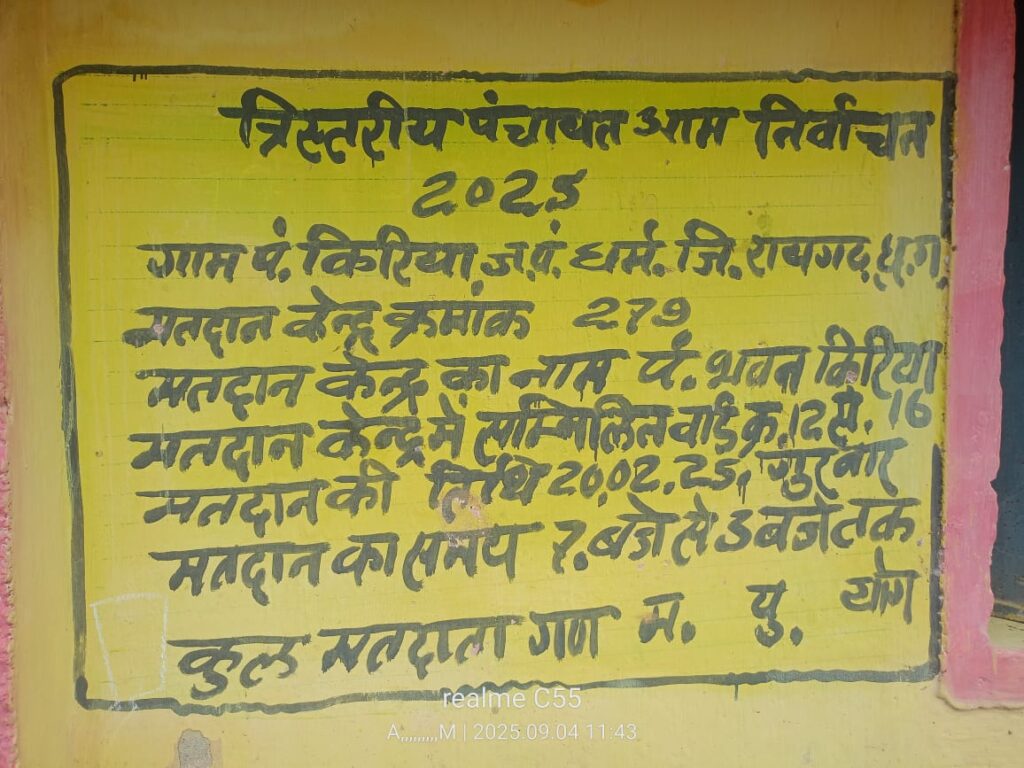 त्रिस्तरीय पंचायत आम निर्वाचन
2025
गाम पं. किरिया ज.पं. धर्म. जि. रायगढ़ छ.ग.
मतदान केन्द्र क्रमांक 279
मतदान केन्द्र का नाम पं. भवन किरिया
मतदान केन्द्र में सम्मिलित वार्ड क्र. 12 से. 16
मतदान की तिथि 20.02.25, गुरुवार
मतदान का समय 7. बजे से 3 बजे तक
कुल मतदाता गण म. पु. योग
realme C55
A,,,,,,,,,M | 2025.09.04 11:43